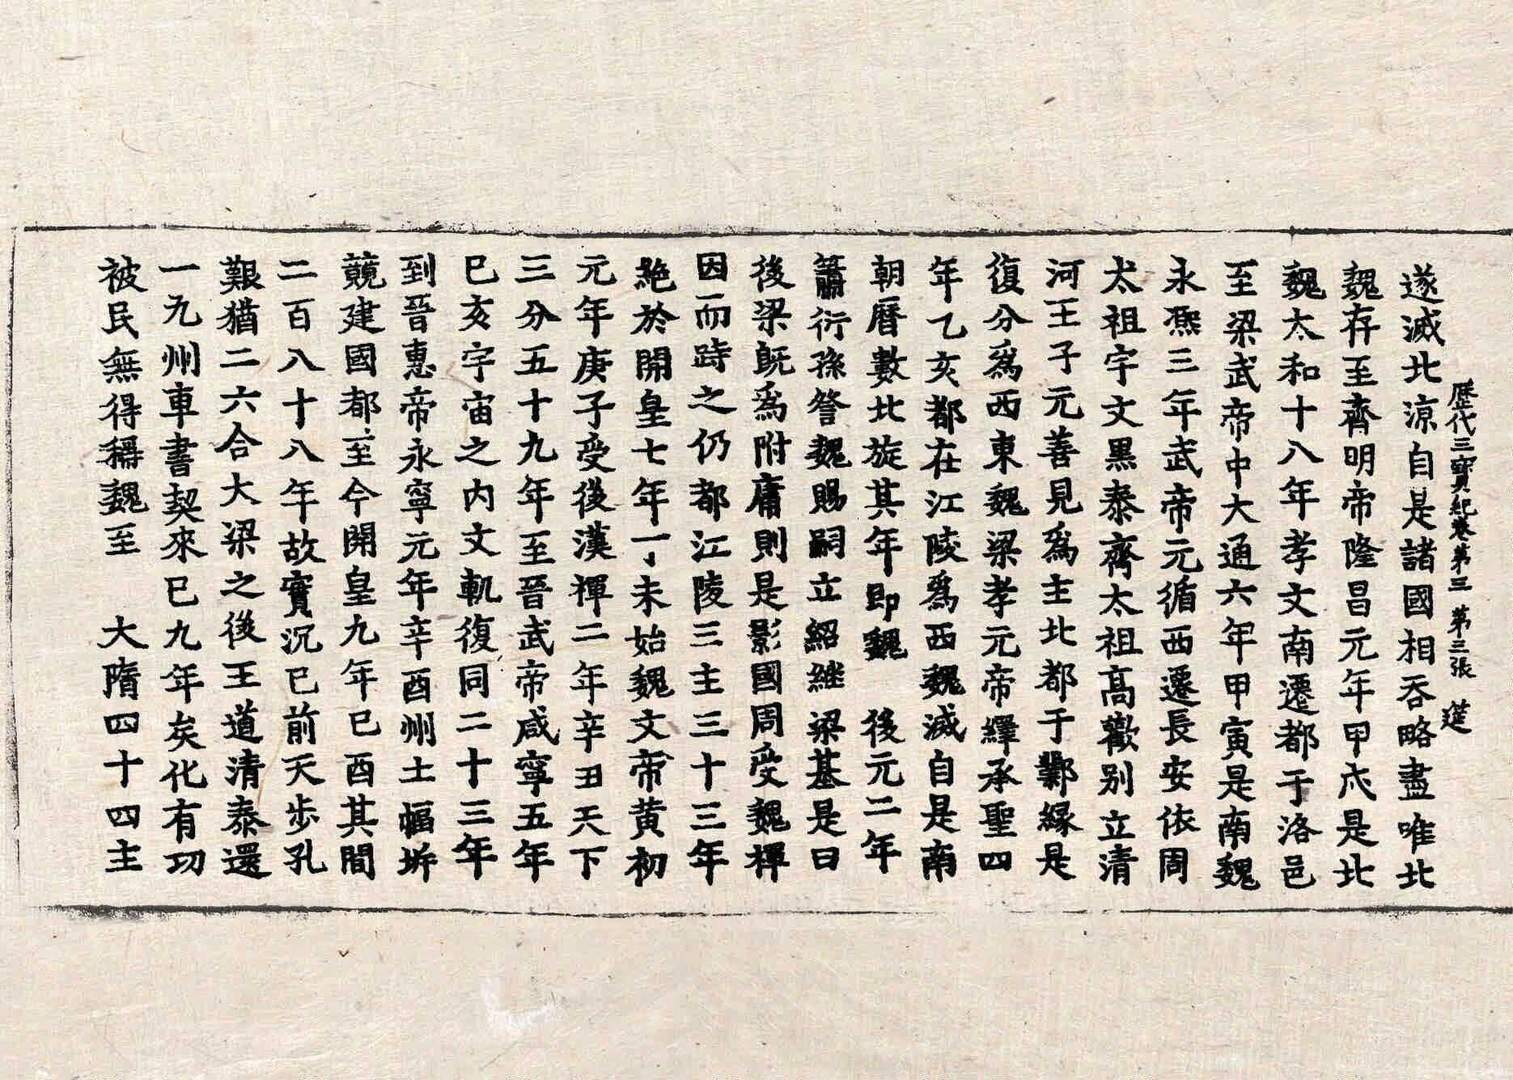 歷代三寶紀卷第三 第三張 㨗
遂滅北涼自是諸國相吞略盡唯北
魏存至齊明帝隆昌元年甲戍是北
魏太和十八年孝文南遷都于洛邑
至梁武帝中大通六年甲寅是南魏
永熈三年武帝元循西遷長安依周
太祖宇文黒泰齊太祖高歡別立清
河王子元善見爲主北都于鄴緣是
復分爲西東魏梁孝元帝繹承聖四
年乙亥都在江陵爲西魏滅自是南
朝曆數北旋其年即魏 後元二年
蕭衍孫詧魏賜嗣立紹継梁基是曰
後梁旣爲附庸則是影國周受魏禪
因而跱之仍都江陵三主三十三年
絶於開皇七年丁未始魏文帝黄初
元年庚子受後漢禪二年辛丑天下
三分五十九年至晉武帝咸寧五年
巳亥宇宙之内文軌復同二十三年
到晉惠帝永寧元年辛酉州土幅坼
競建國都至今開皇九年巳酉其間
二百八十八年故實沉已前天步孔
艱猶二六合大梁之後王道清泰還
一九州車書契來巳九年矣化有功
被民無得稱魏至 大隋四十四主